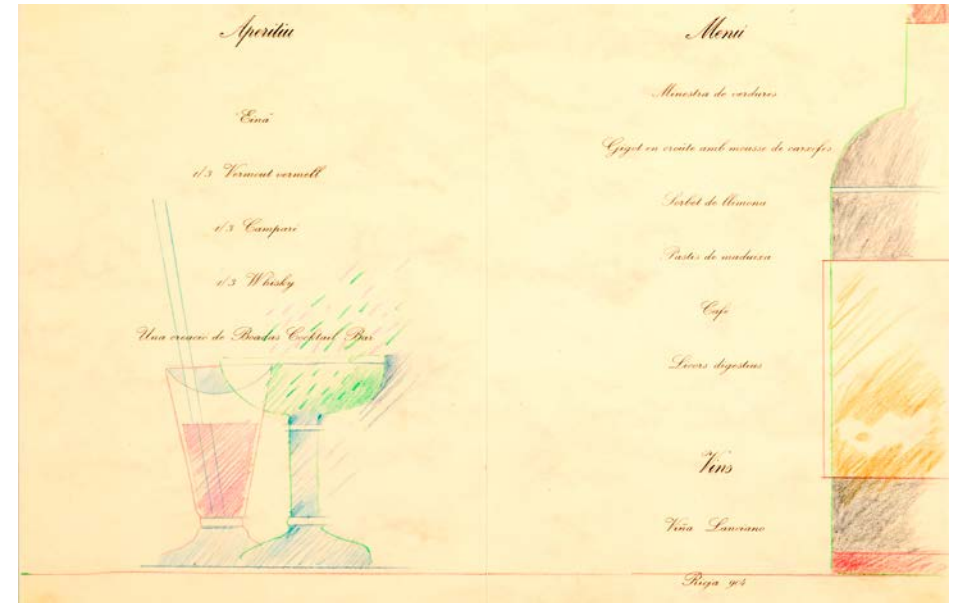 Aperitiu
"Eina"
1/3 Vermout vermell
1/3 Campari
1/3 Whisky
Una creació de Boadas Cocktail Bar
Menú
Minestra de verdures
Gigot en croûte amb mousse de carxofes
Sorbet de llimona
Pastís de maduixa
Café
Licors digestius
Vins
Viña Lanciano
Rioja 904